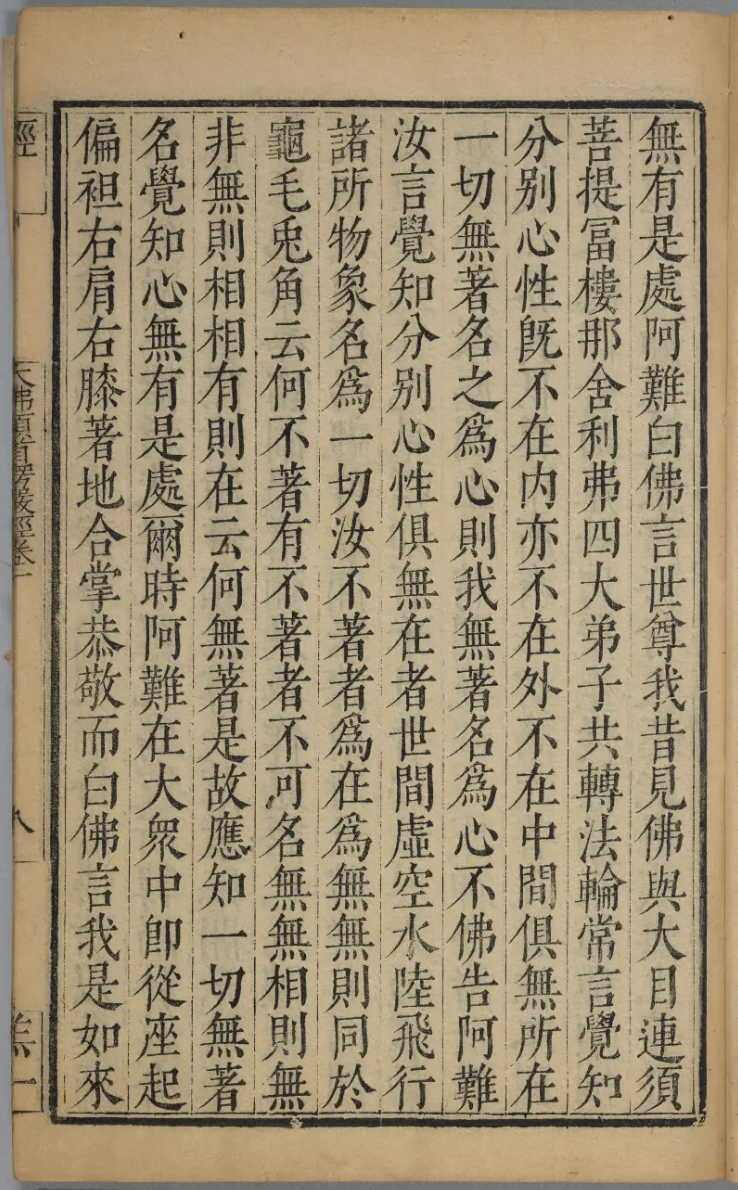 無有是處阿難白佛言世尊我昔見佛與大目連須
菩提富樓那舍利弗四大弟子共轉法輪常言覺知
分别心性旣不在内亦不在外不在中間俱無所在
一切無著名之爲心則我無著名爲心不佛告阿難
汝言覺知分别心性俱無在者世間虛空水陸飛行
諸所物象名爲一切汝不著者爲在爲無無則同於
龜毛兎角云何不著有不著者不可名無無相則無
非無則相相有則在云何無著是故應知一切無著
名覺知心無有是處爾時阿難在大衆中卽從座起
偏袒右肩右膝著地合掌恭敬而白佛言我是如來
經
大佛頂首楞嚴經卷一
八